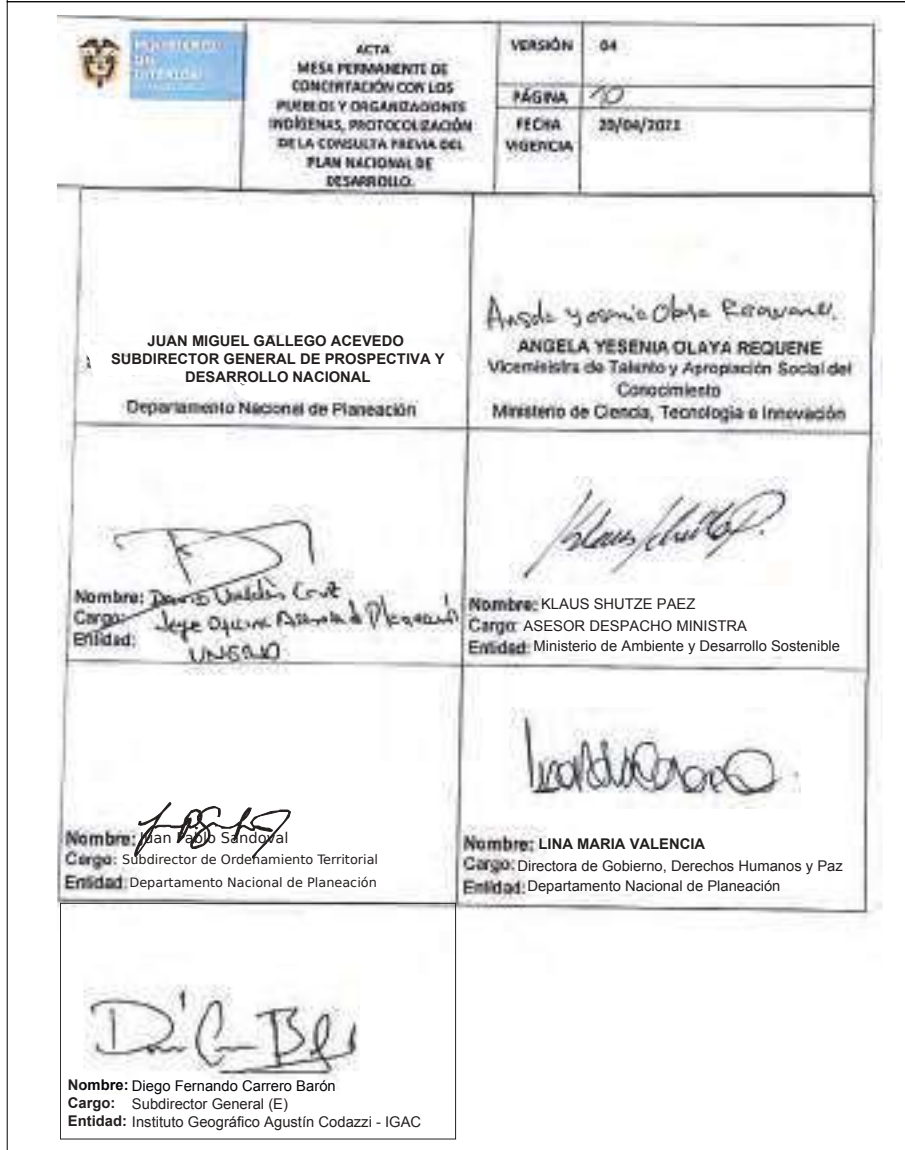 ACTA
MESA PERMANENTE DE
CONCERTACIÓN CON LOS
PUEBLOS Y ORGANIZACIONES
INDÍGENAS, PROTOCOLIZACIÓN
DE LA CONSULTA PREVIA DEL
PLAN NACIONAL DE
DESARROLLO.
VERSIÓN 04
PÁGINA 10
FECHA VIGENCIA
JUAN MIGUEL GALLEGO ACEVEDO
SUBDIRECTOR GENERAL DE PROSPECTIVA Y
DESARROLLO NACIONAL
Departamento Nacional de Planeación
ANGELA YESENIA OLAYA REQUENE
Viceministra de Talento y Apropiación Social del
Conocimiento
Ministerio de Ciencia, Tecnología e Innovación
Nombre:
Cargo: Jefe Oficina Asesora de Planeación
Entidad:
Nombre: KLAUS SHUTZE PAEZ
Cargo: ASESOR DESPACHO MINISTRA
Entidad: Ministerio de Ambiente y Desarrollo Sostenible
Nombre: Juan Pablo Sandoval
Cargo: Subdirector de Ordenamiento Territorial
Entidad: Departamento Nacional de Planeación
Nombre: LINA MARIA VALENCIA
Cargo: Directora de Gobierno, Derechos Humanos y Paz
Entidad: Departamento Nacional de Planeación
Nombre: Diego Fernando Carrero Barón
Cargo: Subdirector General (E)
Entidad: Instituto Geográfico Agustín Codazzi - IGAC